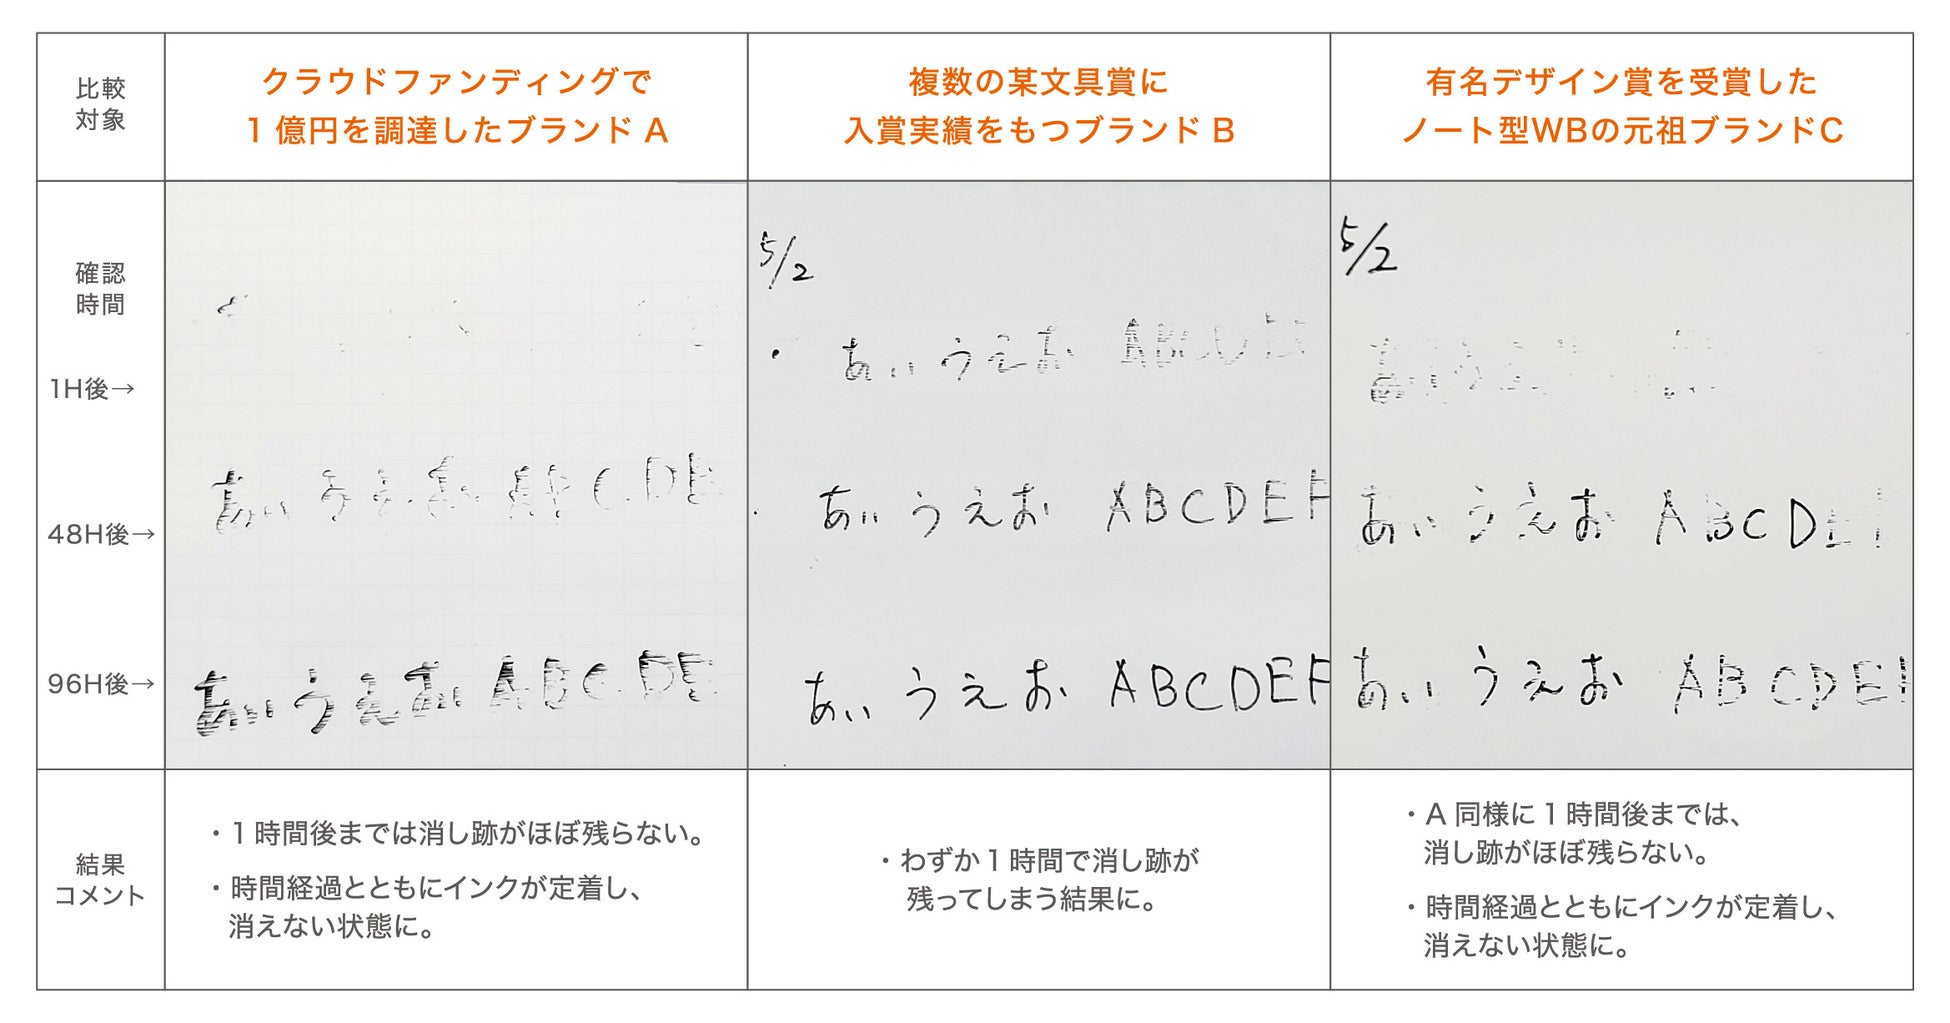 比較
対象
クラウドファンディングで
1億円を調達したブランド A
複数の某文具賞に
入賞実績をもつブランド B
有名デザイン賞を受賞した
ノート型WBの元祖ブランドC
確認
時間
1H後→
48H後→
96H後→
あいうえお ABCDE
あいうえお ABCDE
5/2
あいうえお ABCDE
あいうえお ABCDEF
あいうえお ABCDEF
5/2
あいうえお ABCDE
あいうえお ABCDE
結果
コメント
・1時間後までは消し跡がほぼ残らない。
・時間経過とともにインクが定着し、
消えない状態に。
・わずか1時間で消し跡が
残ってしまう結果に。
・A同様に1時間後までは、
消し跡がほぼ残らない。
・時間経過とともにインクが定着し、
消えない状態に。